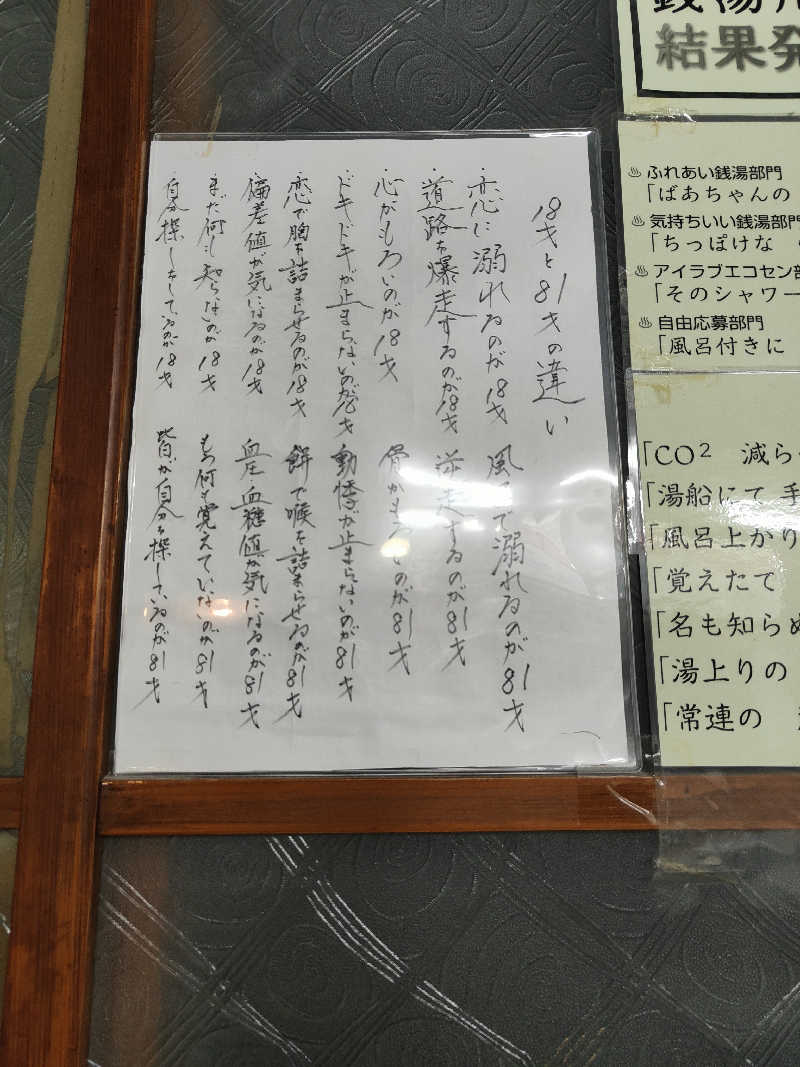 18才と81才の違い
・恋に溺れるのが18才 風呂で溺れるのが81才
・道路を爆走するのが18才 逆走するのが81才
・心がもろいのが18才 骨がもろいのが81才
・ドキドキが止まらないのが18才 動悸が止まらないのが81才
・恋で胸を詰まらせるのが18才 餅で喉を詰まらせるのが81才
・偏差値が気になるのが18才 血圧・血糖値が気になるのが81才
・まだ何も知らないのが18才 もう何も覚えていないのが81才
・自分探しをしているのが18才 皆が自分を探しているのが81才
結果発
♨ふれあい銭湯部門
「ばあちゃんの
♨気持ちいい銭湯部門
「ちっぽけな
♨アイラブエコセン部
「そのシャワー
♨自由応募部門
「風呂付きに
「CO² 減ら
「湯船にて 手
「風呂上かり
「覚えたて
「名も知らぬ
「湯上りの
「常連の